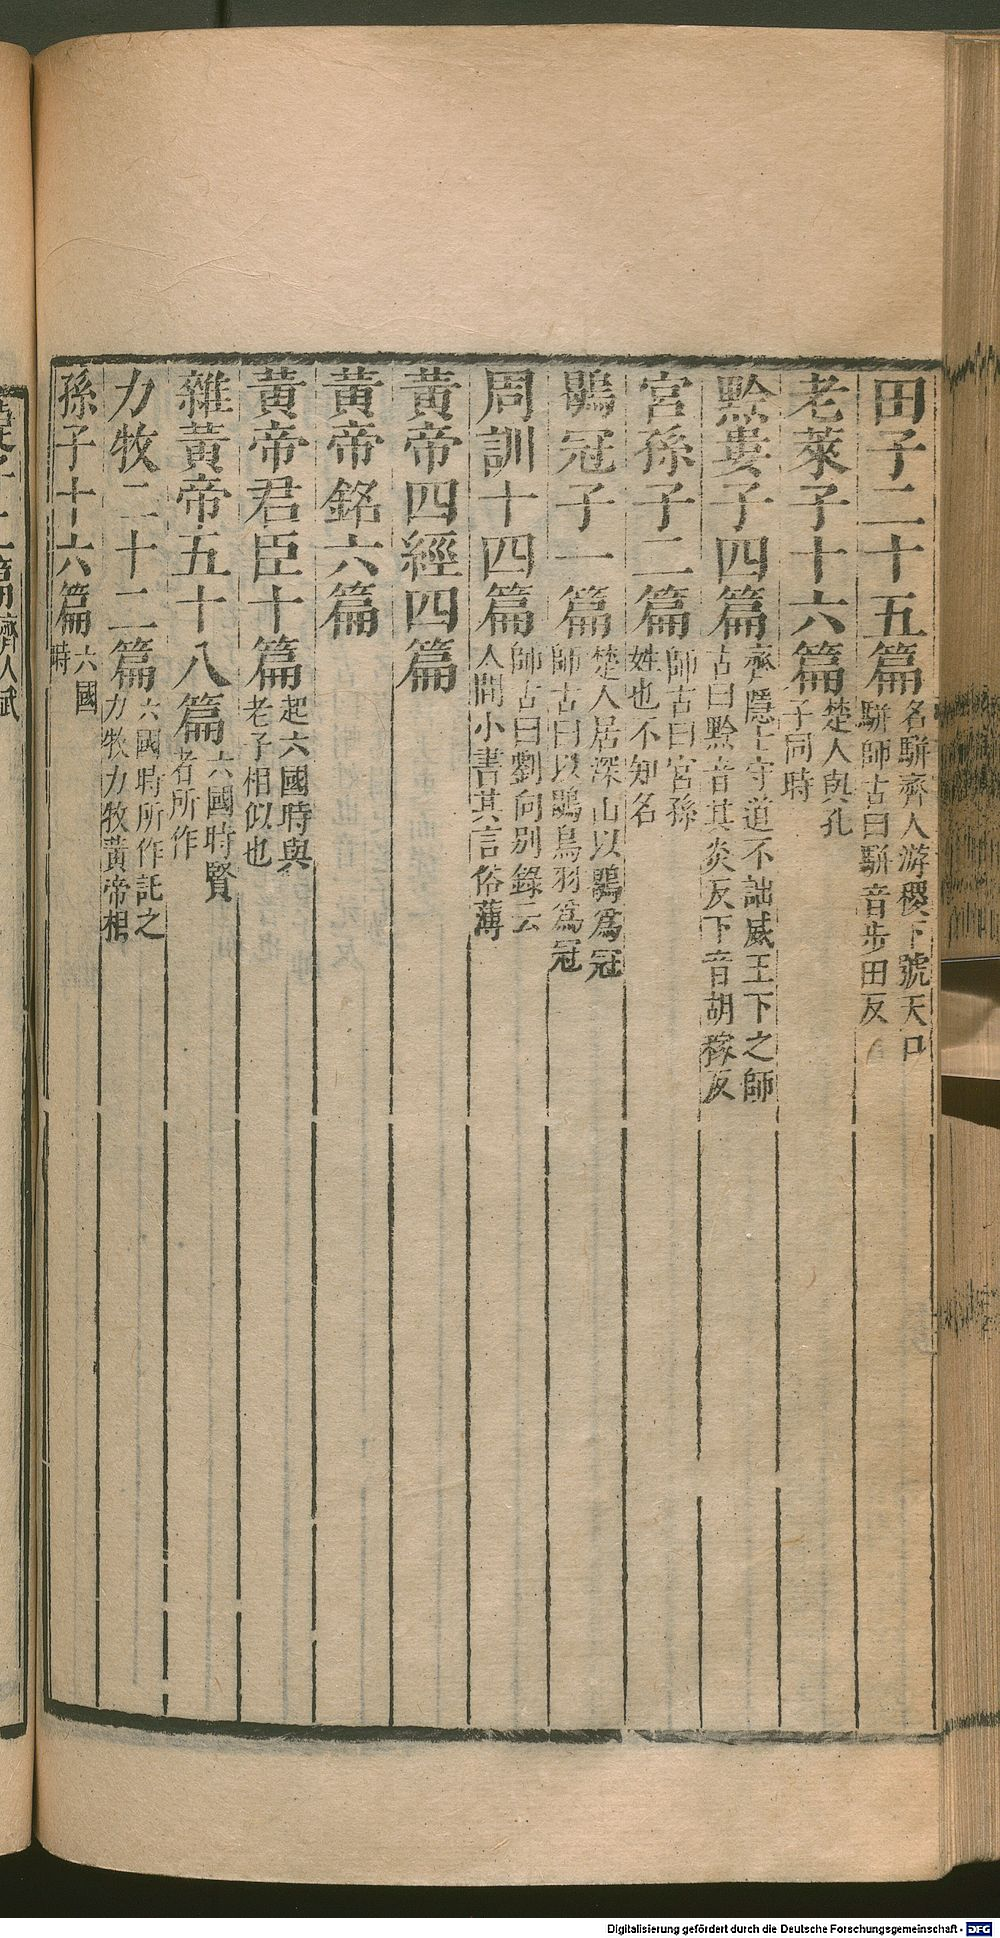 田子二十五篇名駢齊人游稷下號天口駢師古曰駢音步田反
老萊子十六篇楚人與孔子同時
黔婁子四篇齊隱士守道不詘威王下之師古曰黔音其炎反下音胡稼反
宮孫子二篇師古曰宮孫姓也不知名
鶡冠子一篇楚人居深山以鶡爲冠師古曰以鶡鳥羽爲冠
周訓十四篇師古曰劉向別錄云人間小書其言俗薄
黃帝四經四篇
黃帝銘六篇
黃帝君臣十篇起六國時與老子相似也
雜黃帝五十八篇六國時賢者所作
力牧二十二篇六國時所作託之力牧力牧黃帝相
孫子十六篇六國時
Digitalisierung gefördert durch die Deutsche Forschungsgemeinschaft - DFG